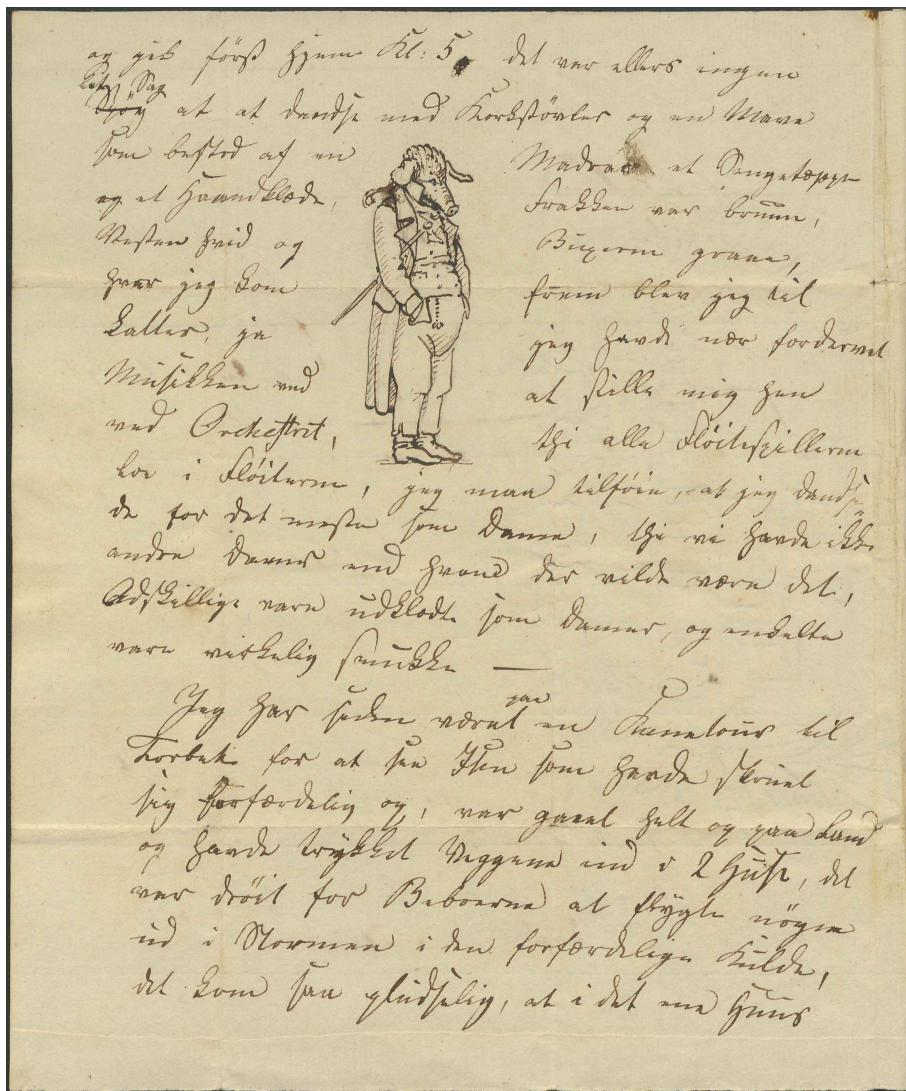 og gik först hjem Kl: 5, det var ellers ingen
let Sag
Spøg at at dandse med Korkstøvler og en Mave
som bestod af en Madras et Sengetæppe
og et Haandklæde, Frakken var bruun,
Vesten hvid og Buxerne graae,
hvor jeg kom frem blev jeg til
Latter, ja jeg havde nær fordervet
Musikken ved at stille mig hen
ved Orchestret, thi alle Fløitespillerne
loe i Fløiterne, jeg maa tilføie, at jeg dandse
de for det meste som Dame, thi vi havde ikke
andre Damer end hvem der vilde være det,
Adskillige vare udklædte som Damer, og enkelte
vare virkelig smukke —
Jeg har siden været paa en Kanetour til
Torbek for at see Isen som havde skruet
sig forfærdelig op, var gaaet helt op paa Land
og havde trykket Veggene ind i 2 Huse, det
var drøit for Beboerne at flygte nøgne
ud i Stormen i den forfærdelige Kulde,
det kom saa pludselig, at i det ene Huus